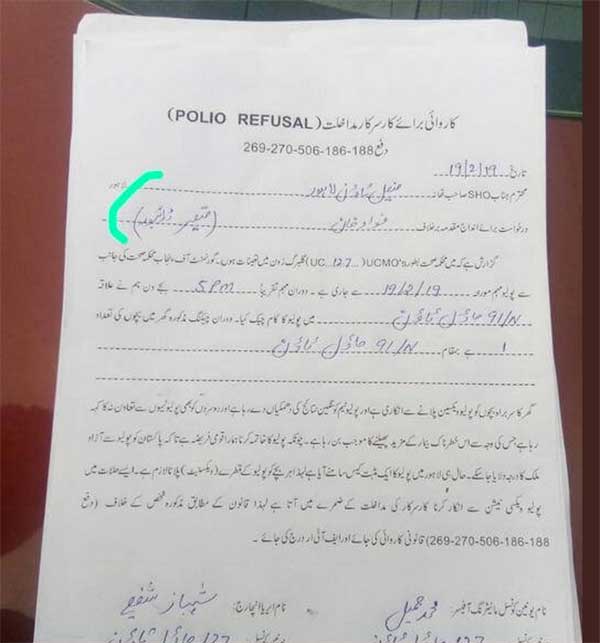 کاروائی برائے کار سرکار مداخلت (POLIO REFUSAL)
دفع 269-270-506-186-188
تاریخ 19/2/19
محترم جناب SHO صاحب تھانہ ماڈل ٹاؤن لاہور لاہور
درخواست برائے اندراج مقدمہ برخلاف فواد خان
گزارش ہے کہ میں محکمہ صحت بطور UCMO's (UC...127) گلبرگ زون میں تعینات ہوں۔ گورنمنٹ آف پنجاب محکمہ صحت کی جانب
سے پولیو مہم مورخہ 19/2/19 سے جاری ہے۔ دوران مہم تقریباً 5 pm بجے دن ہم نے علاقہ
91/N ماڈل ٹاؤن میں پولیو کا کام چیک کیا۔ دوران چیکنگ مذکورہ گھر میں بچوں کی تعداد
1 ہے بمقام 91/N ماڈل ٹاؤن
گھر کا سربراہ بچوں کو پولیو ویکسین پلانے سے انکاری ہے اور پولیو ٹیم کو سنگین نتائج کی دھمکیاں دے رہا ہے اور دوسروں کو بھی پولیو ٹیموں سے تعاون نہ کا کہہ
رہا ہے جس کی وجہ سے اس خطرناک بیمار کے مزید پھیلنے کا موجب بن رہا ہے۔ چونکہ پولیو کا خاتمہ کرنا ہمارا قومی فریضہ ہے تاکہ پاکستان کو پولیو سے آزاد
ملک کا درجہ دلایا جا سکے۔ حال ہی لاہور میں پولیو کا ایک مثبت کیس سامنے آیا ہے لہذا ہر بچے کو پولیو کے قطرے (ویکسنیٹ) پلانا لازم ہے۔ ایسے حالات میں
پولیو ویکسی نیشن سے انکار کرنا کار سرکار کی مداخلت کے ضمرے میں آتا ہے لہذا قانون کے مطابق مذکورہ شخص کے خلاف (دفع
269-270-506-186-188) قانونی کاروائی کی جائے اور ایف آئی ار درج کی جائے۔
نام یونین کونسل مانیٹرنگ آفیسر: محمد جمیل نام ایریا انچارج: شہباز شفیع